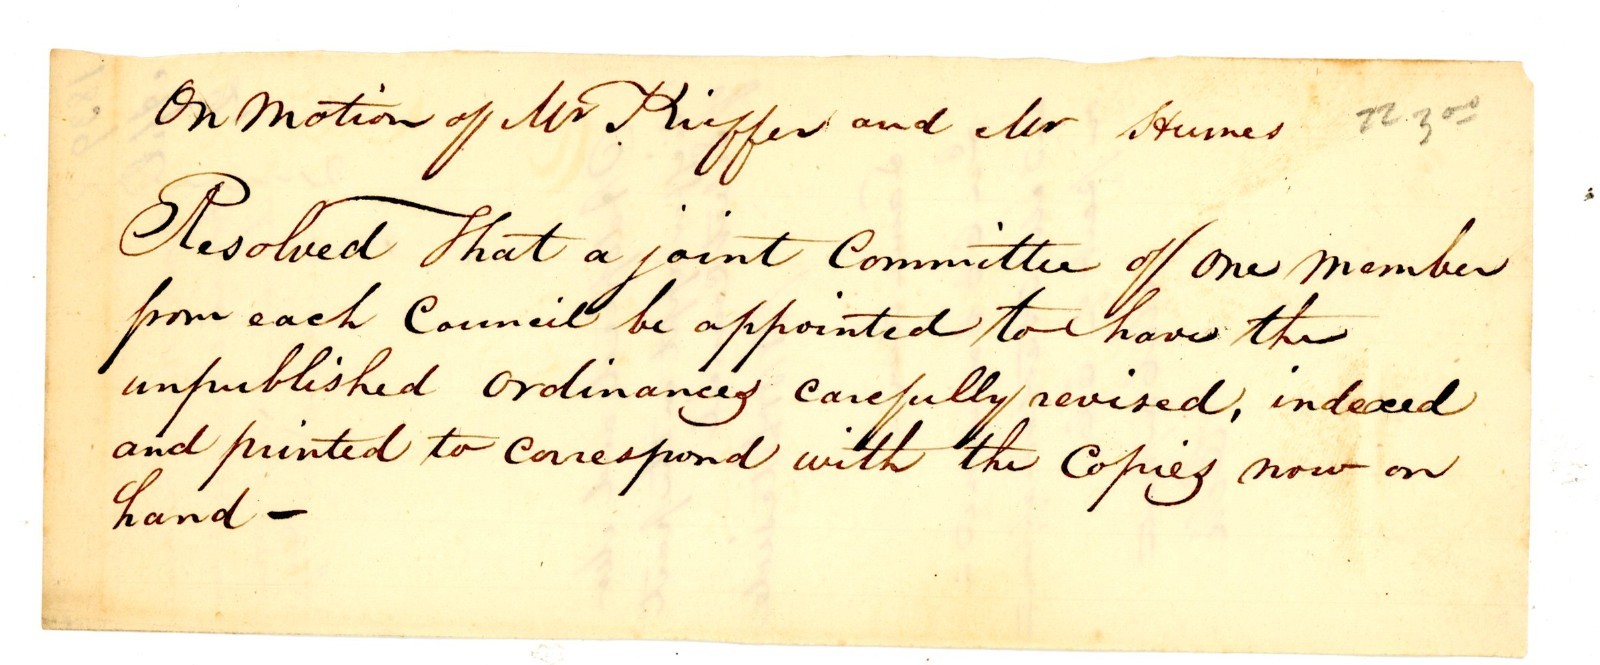 On Motion of Mr Kieffer and Mr Humes
Resolved That a joint Committee of one member
from each Council be appointed to have the
unpublished ordinances carefully revised, indexed
and printed to correspond with the Copies now on
hand —